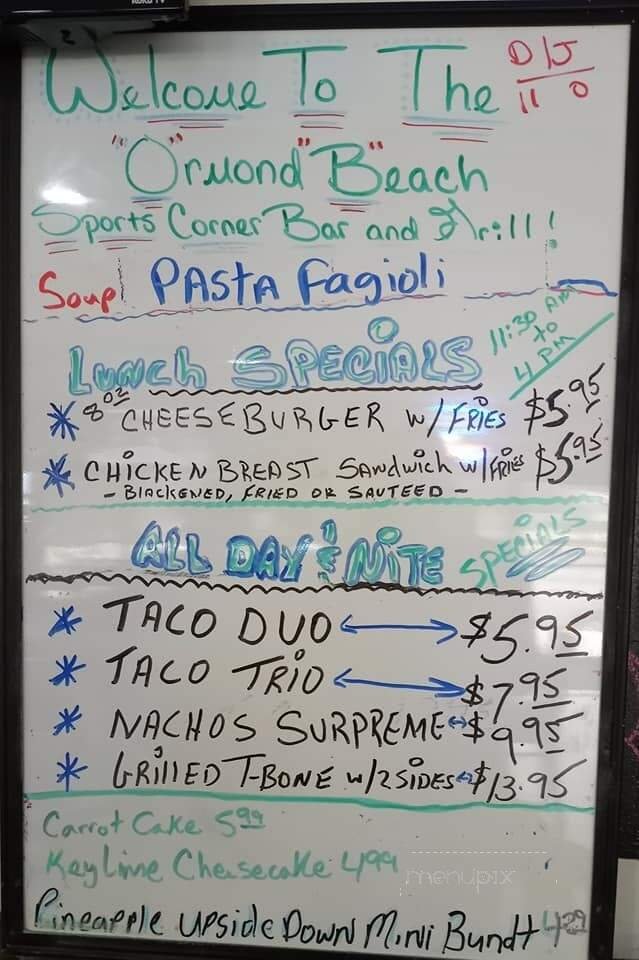 Welcome To The
D/J
11 0
"O"rmond "B"each
Sports Corner Bar and Grill!
Soup PASTA Fagioli
Lunch SPECIALS 11:30 AM to 4 PM
* 8oz CHEESEBURGER w/ FRIES $5.95
* CHICKEN BREAST Sandwich w/ FRIES $5.95
- BLACKENED, FRIED OR SAUTEED -
ALL DAY & NITE SPECIALS
* TACO DUO $5.95
* TACO TRIO $7.95
* NACHOS SURPREME $9.95
* GRILLED T-BONE w/2 SIDES $13.95
Carrot Cake 5.99
Key Lime Cheesecake 4.99
menupix
Pineapple upside Down Mini Bundt 4.29